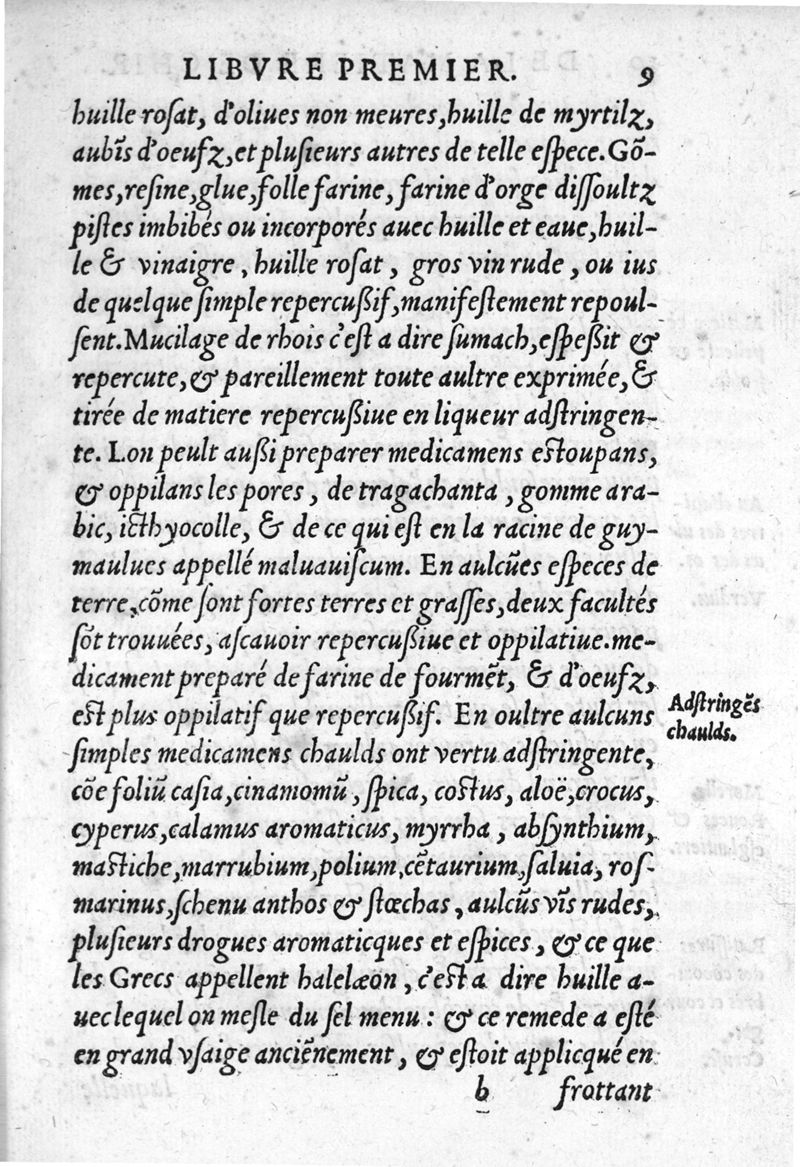 LIBVRE PREMIER. 9
huille rosat, d'oliues non meures,huille de myrtilz,
aubĩs d'oeufz,et plusieurs autres de telle espece.Gõ-
mes,resine,glue,folle farine, farine d'orge dissoultz
pistes imbibés ou incorporés auec huille et eaue,huil-
le & vinaigre, huille rosat, gros vin rude, ou ius
de quelque simple repercußif,manifestement repoul-
sent.Mucilage de rhois c'est a dire sumach,espeßit &
repercute,& pareillement toute aultre exprimée,&
tirée de matiere repercußiue en liqueur adstringen-
te. Lon peult außi preparer medicamens estoupans,
& oppilans les pores, de tragachanta, gomme ara-
bic, icthyocolle, & de ce qui est en la racine de guy-
maulues appellé maluauiscum. En aulcũes especes de
terre,cõme sont fortes terres et grasses,deux facultés
sõt trouuées, ascauoir repercußiue et oppilatiue.me-
dicament preparé de farine de fourmẽt, & d'oeufz,
est plus oppilatif que repercußif. En oultre aulcuns
simples medicamens chaulds ont vertu adstringente,
cõe foliũ casia,cinamomũ, spica, costus, aloë,crocus,
cyperus,calamus aromaticus, myrrha, absynthium,
mastiche,marrubium,polium,cẽtaurium,saluia, ros-
marinus,schenu anthos & stœchas, aulcũs vĩs rudes,
plusieurs drogues aromaticques et espices, & ce que
les Grecs appellent halelæon, c'est a dire huille a-
uec lequel on mesle du sel menu: & ce remede a esté
en grand vsaige anciẽnement, & estoit applicqué en
b frottant
Adstringẽs
chaulds.